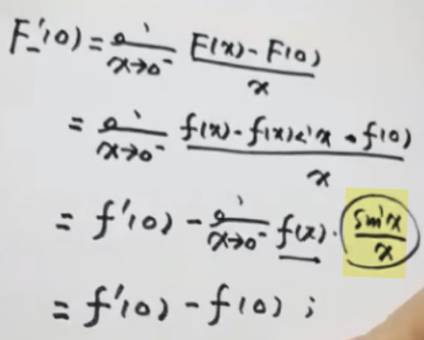 F₋'(0) = lim x→0⁻ (F(x) - F(0))/x
= lim x→0⁻ (f(x) - f(x) sin x - f(0))/x
= f'(0) - lim x→0⁻ f(x) · sin x/x
= f'(0) - f(0) ;